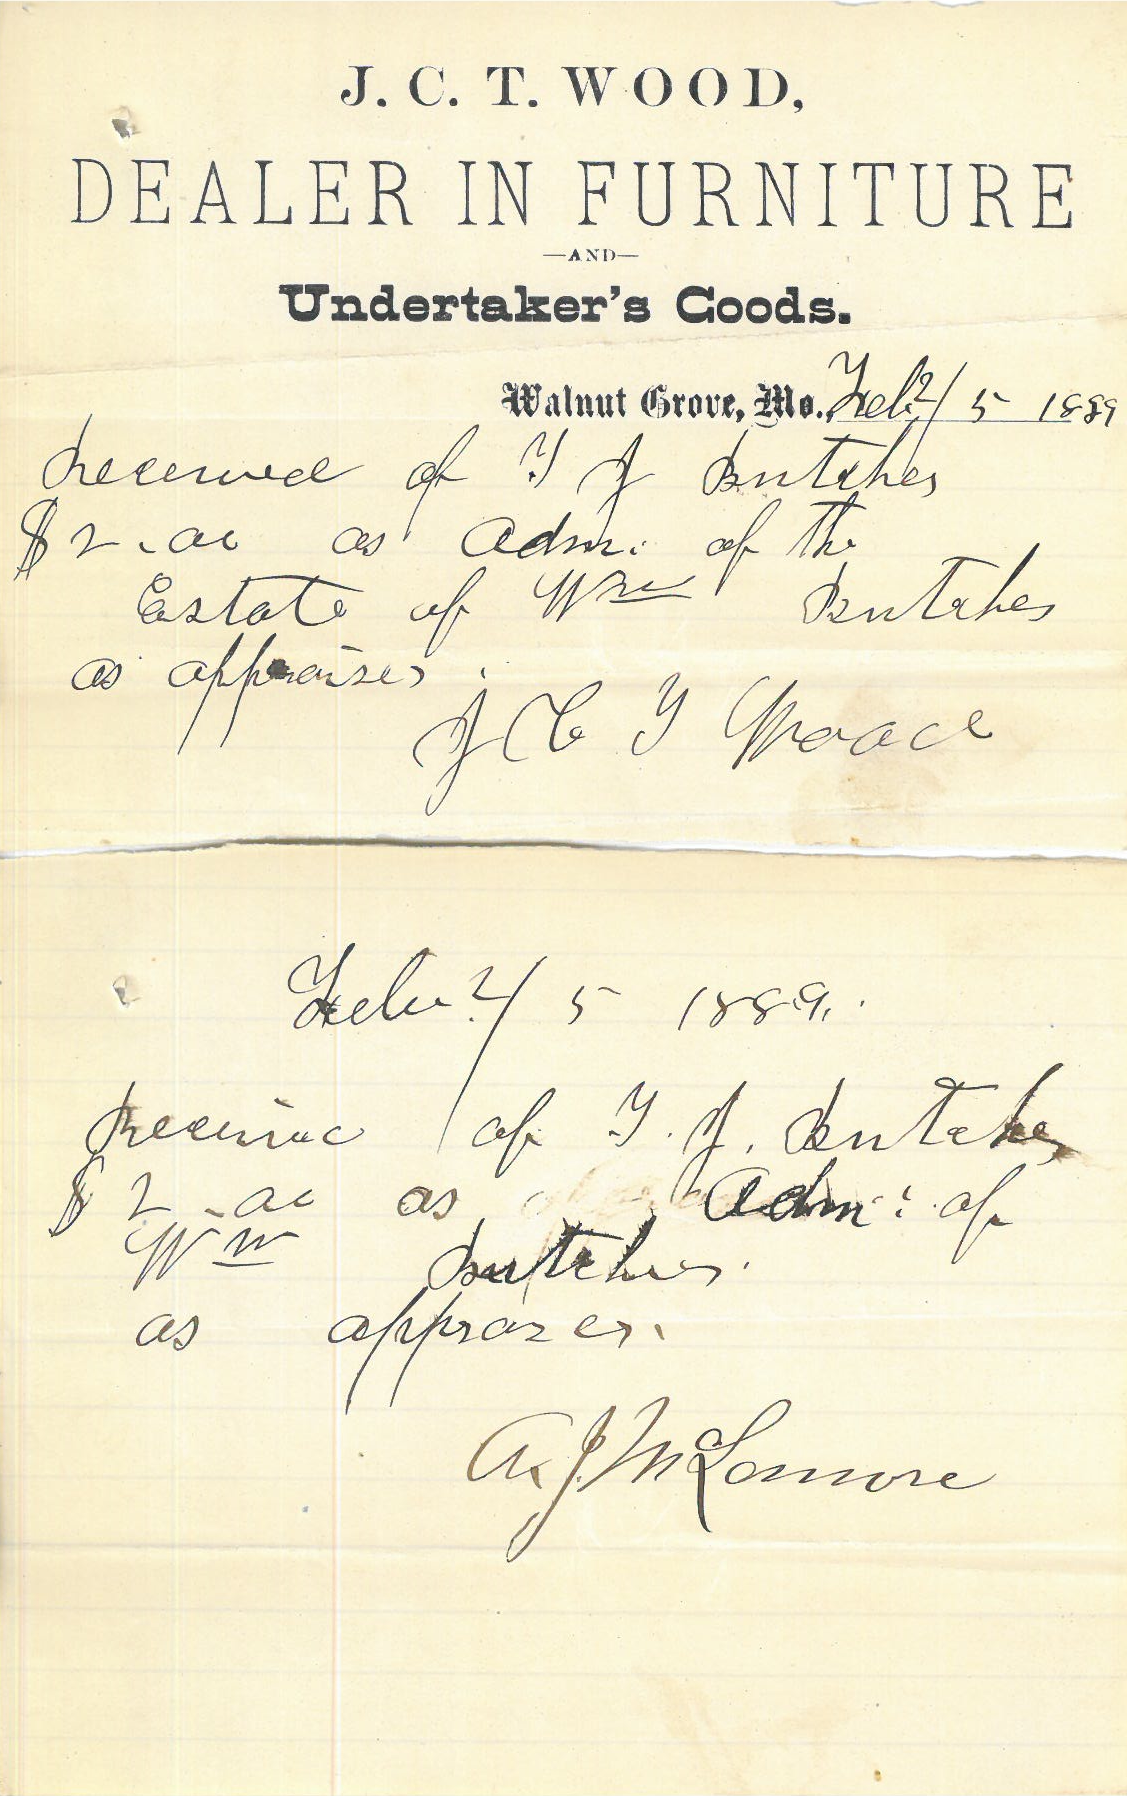 J. C. T. WOOD,
DEALER IN FURNITURE
—AND—
Undertaker's Goods.
Walnut Grove, Mo. Feb 2/5 1889
Received of T J Butcher
$2.00 as Adm: of the
Estate of Wm Butcher
as appraiser.
J C T Wood
Feb 2/5 1889.
Received of T. J. Butcher
$2.00 as Adm: of
Wm Butcher.
as apprazer.
A. J. McLemore